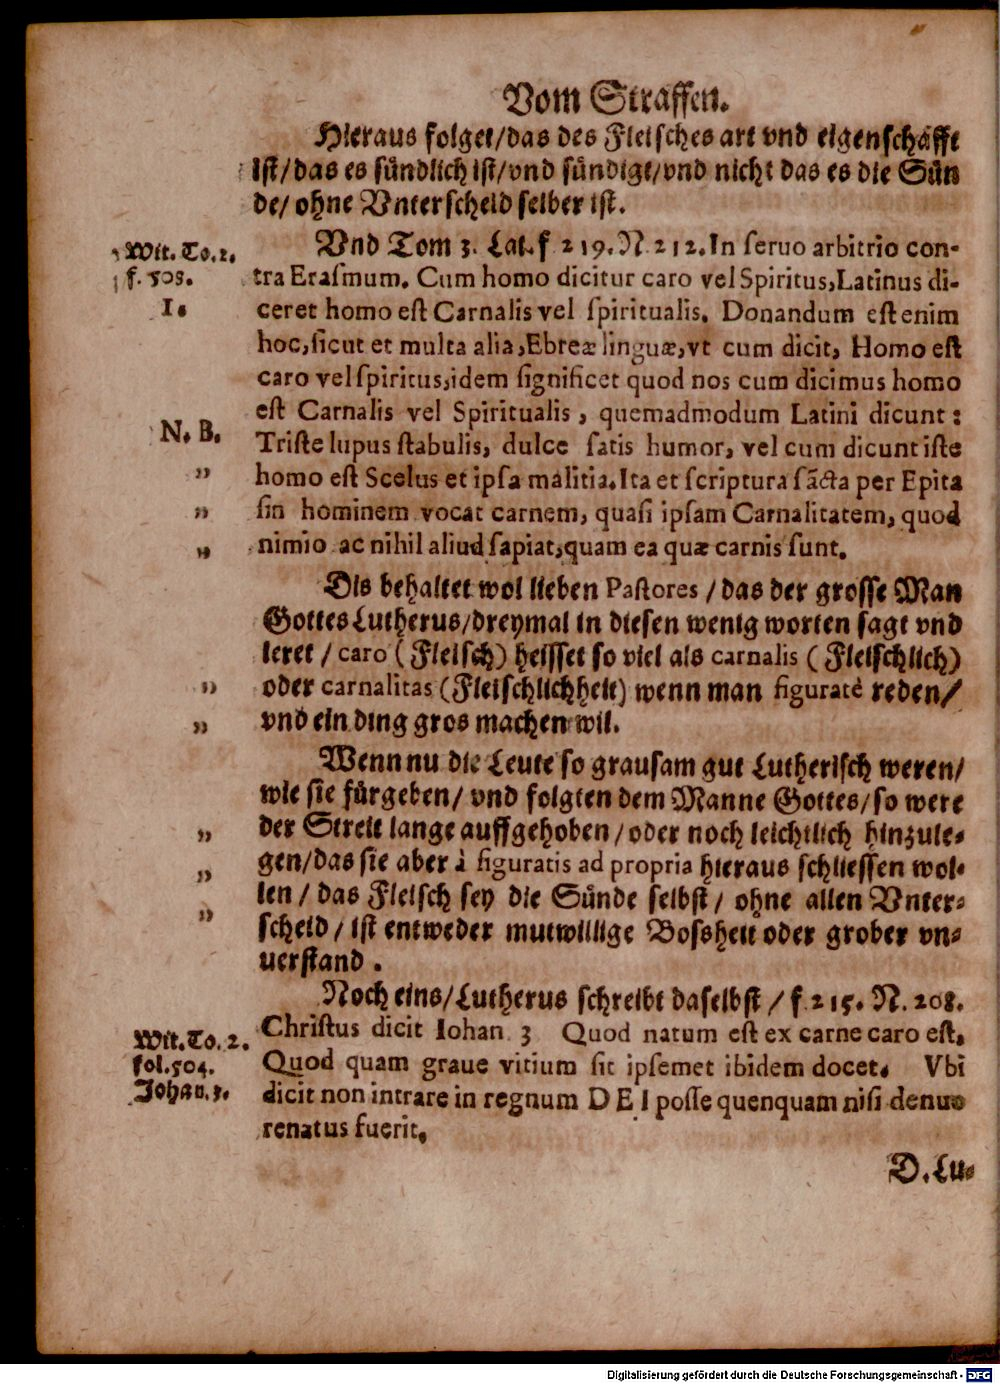 Vom Straffen.
Hieraus folget/das des Fleisches art vnd eigenschafft
ist/das es sündlich ist/vnd sündigt/vnd nicht das es die Sün
de/ohne Vnterscheid selber ist.
Wit. To. 2.
f. 503.
I.
Vnd Tom 3. Lat. f 219. N 212. In ſeruo arbitrio con-
tra Eraſmum. Cum homo dicitur caro vel Spiritus, Latinus di-
ceret homo eſt Carnalis vel ſpiritualis. Donandum eſt enim
hoc, ſicut et multa alia, Ebreæ linguæ, vt cum dicit, Homo eſt
caro vel ſpiritus, idem ſignificet quod nos cum dicimus homo
eſt Carnalis vel Spiritualis, quemadmodum Latini dicunt:
N. B.
Triſte lupus ſtabulis, dulce ſatis humor, vel cum dicunt iſte
homo eſt Scelus et ipſa malitia. Ita et ſcriptura ſācta per Epita
ſin hominem vocat carnem, quaſi ipſam Carnalitatem, quod
nimio ac nihil aliud ſapiat, quam ea quæ carnis ſunt.
Dis behaltet wol lieben Pastores / das der grosse Man
Gottes Lutherus/dreymal in diesen wenig worten sagt vnd
leret / caro (Fleisch) heisset so viel als carnalis (Fleischlich)
oder carnalitas (Fleischlichheit) wenn man figuratè reden/
vnd ein ding gros machen wil.
Wenn nu die Leute so grausam gut Lutherisch weren/
wie sie fürgeben/ vnd folgten dem Manne Gottes/so were
der Streit lange auffgehoben/oder noch leichtlich hinzule-
gen/das sie aber à figuratis ad propria hieraus schliessen wol-
len / das Fleisch sey die Sünde selbst/ ohne allen Vnter-
scheid / ist entweder mutwillige Bossheit oder grober vn-
uerstand.
Noch eins/Lutherus schreibt daselbst / f 215. N. 208.
Wit. To. 2.
fol. 504.
Johan. 3.
Chriſtus dicit Iohan 3 Quod natum eſt ex carne caro eſt,
Quod quam graue vitium ſit ipſemet ibidem docet. Vbi
dicit non intrare in regnum DEI poſſe quenquam niſi denuo
renatus fuerit.
D. Lu-
Digitalisierung gefördert durch die Deutsche Forschungsgemeinschaft - DFG